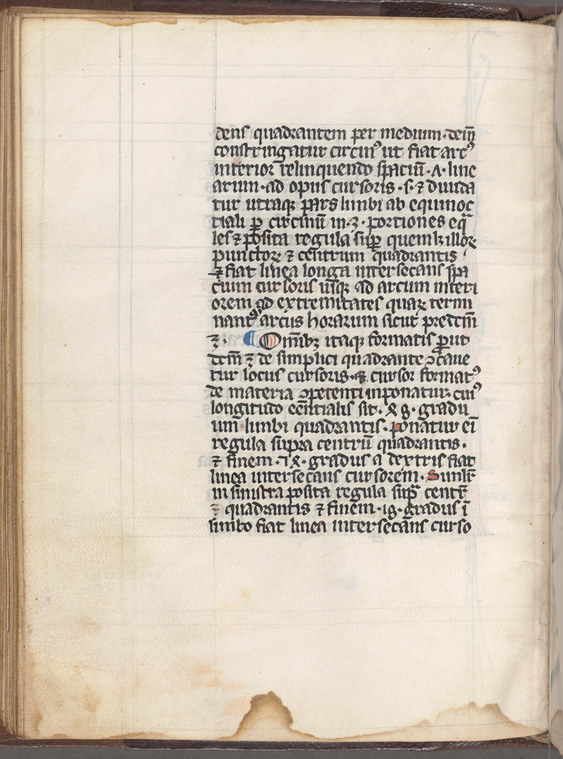 dens quadrantem per medium· deīn
constringatur circinꝰ ut fiat arcꝰ
interior relinquendo spatiū· Λ· line
arum· ad opus cursoris· s· ⁊ diuida
tur utraqꝫ pars limbi ab equinoc
tiali ꝑ circinū in· 3· portiones eq̄
les ⁊ posita regula suꝑ quemlꝫ illorꝝ
punctorꝝ ⁊ centrum quadrantis
⁊ fiat linea longa intersecans spa
cium cursoris usqꝫ ad arcum interi
orem ad extremitates quarꝝ termi
nantꝰ arcus horarum sicut predcm̄
⁊· Om̄ibꝫ itaqꝫ formatis ꝓut
dcm̄ ⁊ de simplici quadrante ꝯcaue
tur locus cursoris· ⁊ cursor formatꝰ
de materia ꝯpetenti inponatur· cuiꝰ
longitudo eēntialis sit· gradu
um limbi quadrantis· ponatur ei
regula supra centrū quadrantis·
⁊ finem· gradus a dextris fiat
linea intersecans cursorem· Simlr̄
in sinistra posita regula suꝑ centrū
quadrantis ⁊ finem· 19· gradus ī
limbo fiat linea intersecans curso